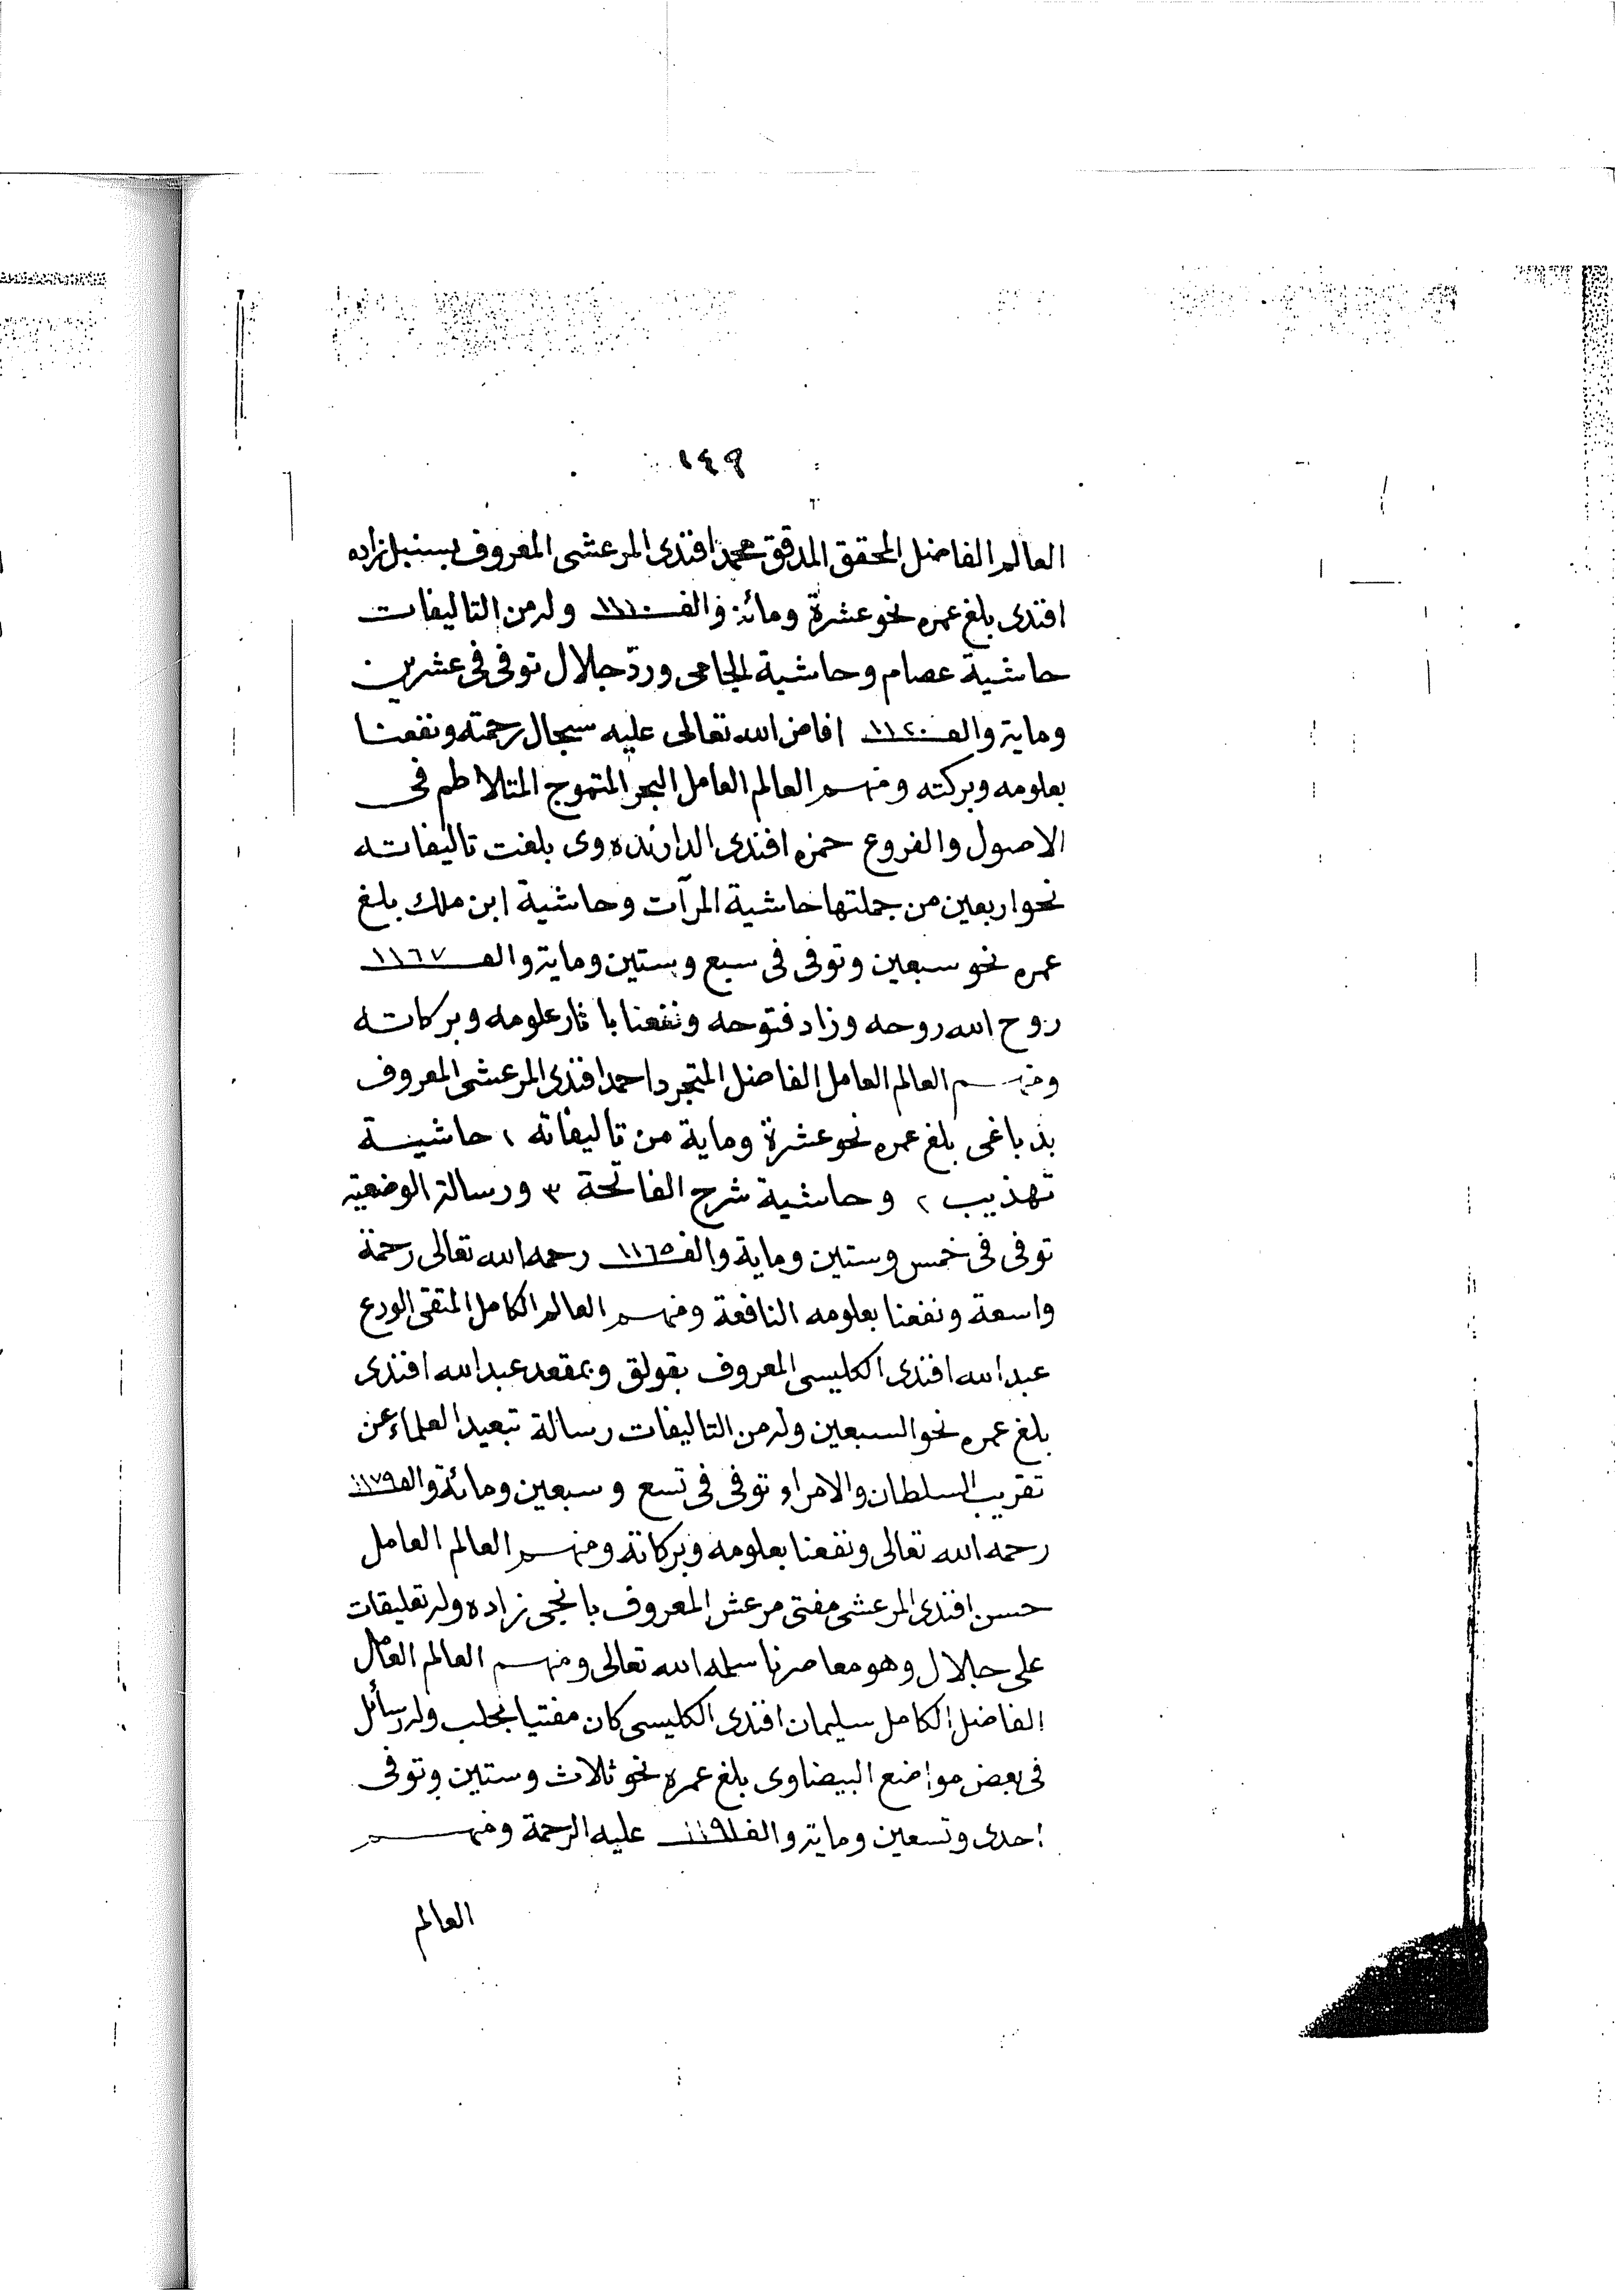 ١٤٩
العالم الفاضل المحقق المدقق محمد افندى المرعشى المعروف بسنبل زاده
افندى بلغ عمره نحو عشرة ومائة والف ١١١٠ وله من التاليفات
حاشية عصام وحاشية الجامى ورد جلال توفى فى عشرين
وماية والف ١١٢٠ افاض الله تعالى عليه سجال رحمته ونفعنا
بعلومه وبركته ومنهم العالم العامل البحر المتموج المتلاطم فى
الاصول والفروع حمزه افندى الدارنده وى بلغت تاليفاته
نحو اربعين من جملتها حاشية المرآت وحاشية ابن ملك بلغ
عمره نحو سبعين وتوفى فى سبع وستين وماية والف ١١٦٧
روح الله روحه وزاد فتوحه ونفعنا باثار علومه وبركاته
ومنهم العالم العامل الفاضل المتجرد احمد افندى المرعشى المعروف
بدباغى بلغ عمره نحو عشرة وماية من تاليفاته ١ حاشية
تهذيب ٢ وحاشية شرح الفاتحة ٣ ورسالة الوضعية
توفى فى خمس وستين وماية والف ١١٦٥ رحمه الله تعالى رحمة
واسعة ونفعنا بعلومه النافعة ومنهم العالم الكامل المتقى الورع
عبد الله افندى الكليسى المعروف بقولق وبمقعد عبد الله افندى
بلغ عمره نحو السبعين وله من التاليفات رسالة تبعيد العلماء عن
تقريب السلطان والامراء توفى فى تسع وسبعين ومائة والف ١١٧٩
رحمه الله تعالى ونفعنا بعلومه وبركاته ومنهم العالم العامل
حسن افندى المرعشى مفتى مرعش المعروف بانجى زاده وله تعليقات
على جلال وهو معاصرنا سلمه الله تعالى ومنهم العالم العامل
الفاضل الكامل سليمان افندى الكليسى كان مفتيا بحلب وله رسائل
فى بعض مواضع البيضاوى بلغ عمره نحو ثلاث وستين وتوفى
احدى وتسعين وماية والف ١١٩١ عليه الرحمة ومنهم
العالم